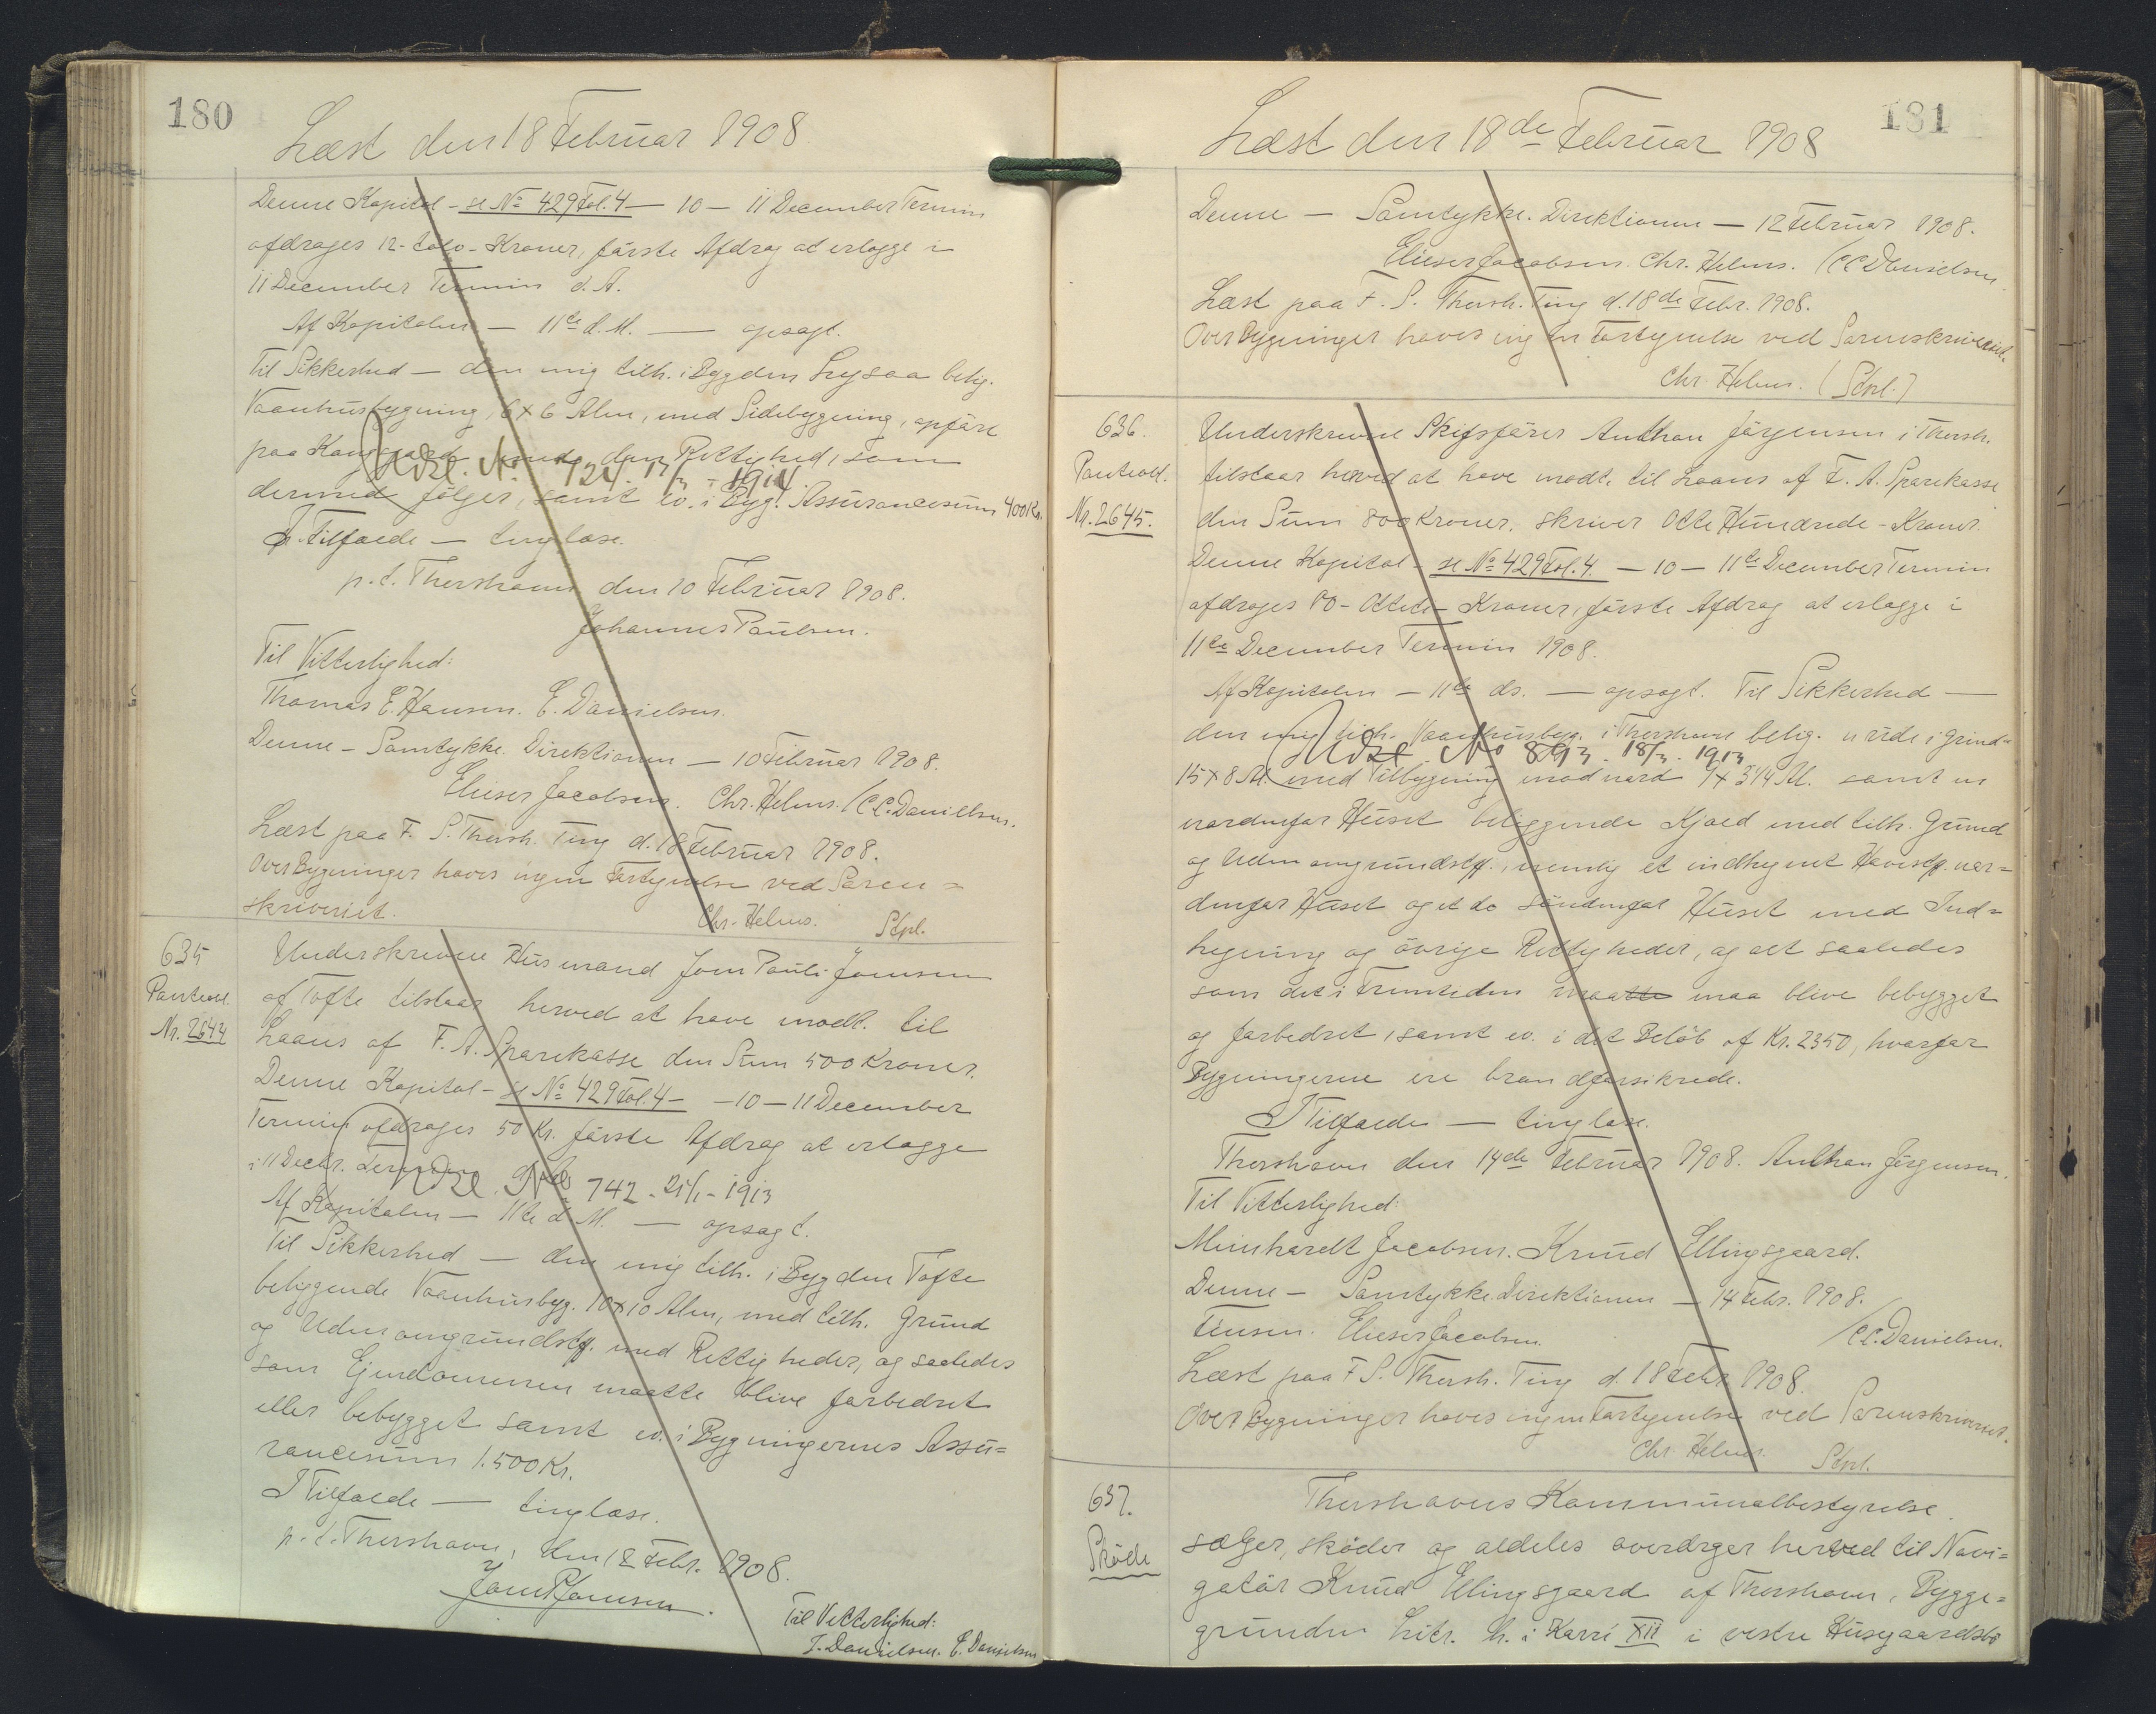 180
Læst den 18 Februar 1908
Denne Kapital - se No 429 Fol. 4 - 10 - 11 December Termin
afdrages 12 - tolv - Kroner, første Afdrag at erlægge i
11 December Termin d. A.
Af Kapitalen - 11te d. M. - opsagt.
Til Sikkerhed - den mig tilh. i Bygden belig.
Vaanhusbygning, 6 x 6 Alen, med Sidebygning, opført
paa med den Rettighed, som
Udsl. No. 124. 1914.
dermed følger, samt ev. i Byg. Assurancesum 400 Kr.
I Tilfælde - tinglæse.
p. t. Thorshavn den 10 Februar 1908.
Johannes Paulsen.
Til Vitterlighed:
Thomas E. Hansen. E. Danielsen.
Denne - Samtykke. Direktionen - 10 Februar 1908.
Elieser Jacobsen. Chr. Helms. / C C. Danielsen.
Læst paa F. S. Thorsh. Ting d. 18 Februar 1908.
Over Bygninger haves ingen Fortegnelse ved Soren=
skriveriet.
Chr. Helms. Stpl.
635
Panteobl.
Nr. 2644
Underskrevne Husmand Joen Pauli Joensen
af Tofte tilstaar herved at have modt. til
Laans af F. A. Sparekasse den Sum 500 Kroner.
Denne Kapital - se No 429 Fol. 4 - - 10 - 11 December
Termin afdrages 50 Kr. første Afdrag at erlægge
i 11 Decbr. Termin
Udsl. No 742 - 21/1 - 1913
Af Kapitalen - 11te d M. - opsagt.
Til Sikkerhed - den mig tilh. i Bygden Tofte
beliggende Vaanhusbyg. 10 x 10 Alen, med tilh. Grund
og Udenomsgrundstk. med Rettigheder, og saaledes
som Ejendommen maatte blive forbedret
eller bebygget samt ev. i Bygningernes Assu=
rancesum 1.500 Kr.
I Tilfælde - tinglæse.
p. t. Thorshavn, den 12 Febr. 1908.
Joen P Joensen.
Til Vitterlighed:
J. Danielsen. E. Danielsen
181
Læst den 18de Februar 1908
Denne - Samtykke. Direktionen - 12 Februar 1908.
Elieser Jacobsen. Chr. Helms. / C C Danielsen.
Læst paa F. S. Thorsh. Ting d. 18de Febr. 1908.
Over Bygninger haves ingen Fortegnelse ved Sorenskriveriet.
Chr. Helms. (Stpl.)
636.
Panteobl.
Nr. 2645.
Underskrevne Skibsfører Anthon Jørgensen i Thorsh.
tilstaar herved at have modt. til Laans af F. A. Sparekasse
den Sum 800 Kroner, skriver Otte Hundrede - Kroner.
Denne Kapital - se No 429 Fol. 4. - 10 - 11te December Termin
afdrages 80 - Otteti - Kroner, første Afdrag at erlægge i
11te December Termin 1908.
Af Kapitalen - 11te ds. - opsagt. Til Sikkerhed -
den mig tilh. Vaanhusbyg. i Thorshavn belig. ude i grind=
Udsl. No 893. 18/3. 1913
15 x 8 Al. med Tilbygning mod nord 9 x 3 1/4 Al. samt en
nordenfor Huset beliggende Kjæld med tilh. Grund
og Udenomsgrundstk., nemlig et indhegnet Havestk. nor=
denfor Huset og et do søndenfor Huset med Ind=
hegning og øvrige Rettigheder, og alt saaledes
som det i Fremtiden maatte maa blive bebygget
og forbedret, samt ev. i det Beløb af Kr. 2350, hvorfor
Bygningerne ere brandforsikrede.
I Tilfælde - tinglæse.
Thorshavn den 14de Februar 1908. Anthon Jørgensen.
Til Vitterlighed:
Meinhardt Jacobsen. Knud Ellingsgaard.
Denne - Samtykke. Direktionen - 14 Febr. 1908.
Finsen. Elieser Jacobsen. / C C. Danielsen.
Læst paa F. S. Thorsh. Ting d. 18 Febr. 1908.
Over Bygninger haves ingen Fortegnelse ved Sorenskriveriet.
Chr. Helms. Stpl.
637.
Skøde
Thorshavns Kommunalbestyrelse
sælger, skøder og aldeles overdrager herved til Navi=
gatør Knud Ellingsgaard af Thorshavn, Bygge=
grunden Litr. h. i Karré XII i vestre Husgaardsbø